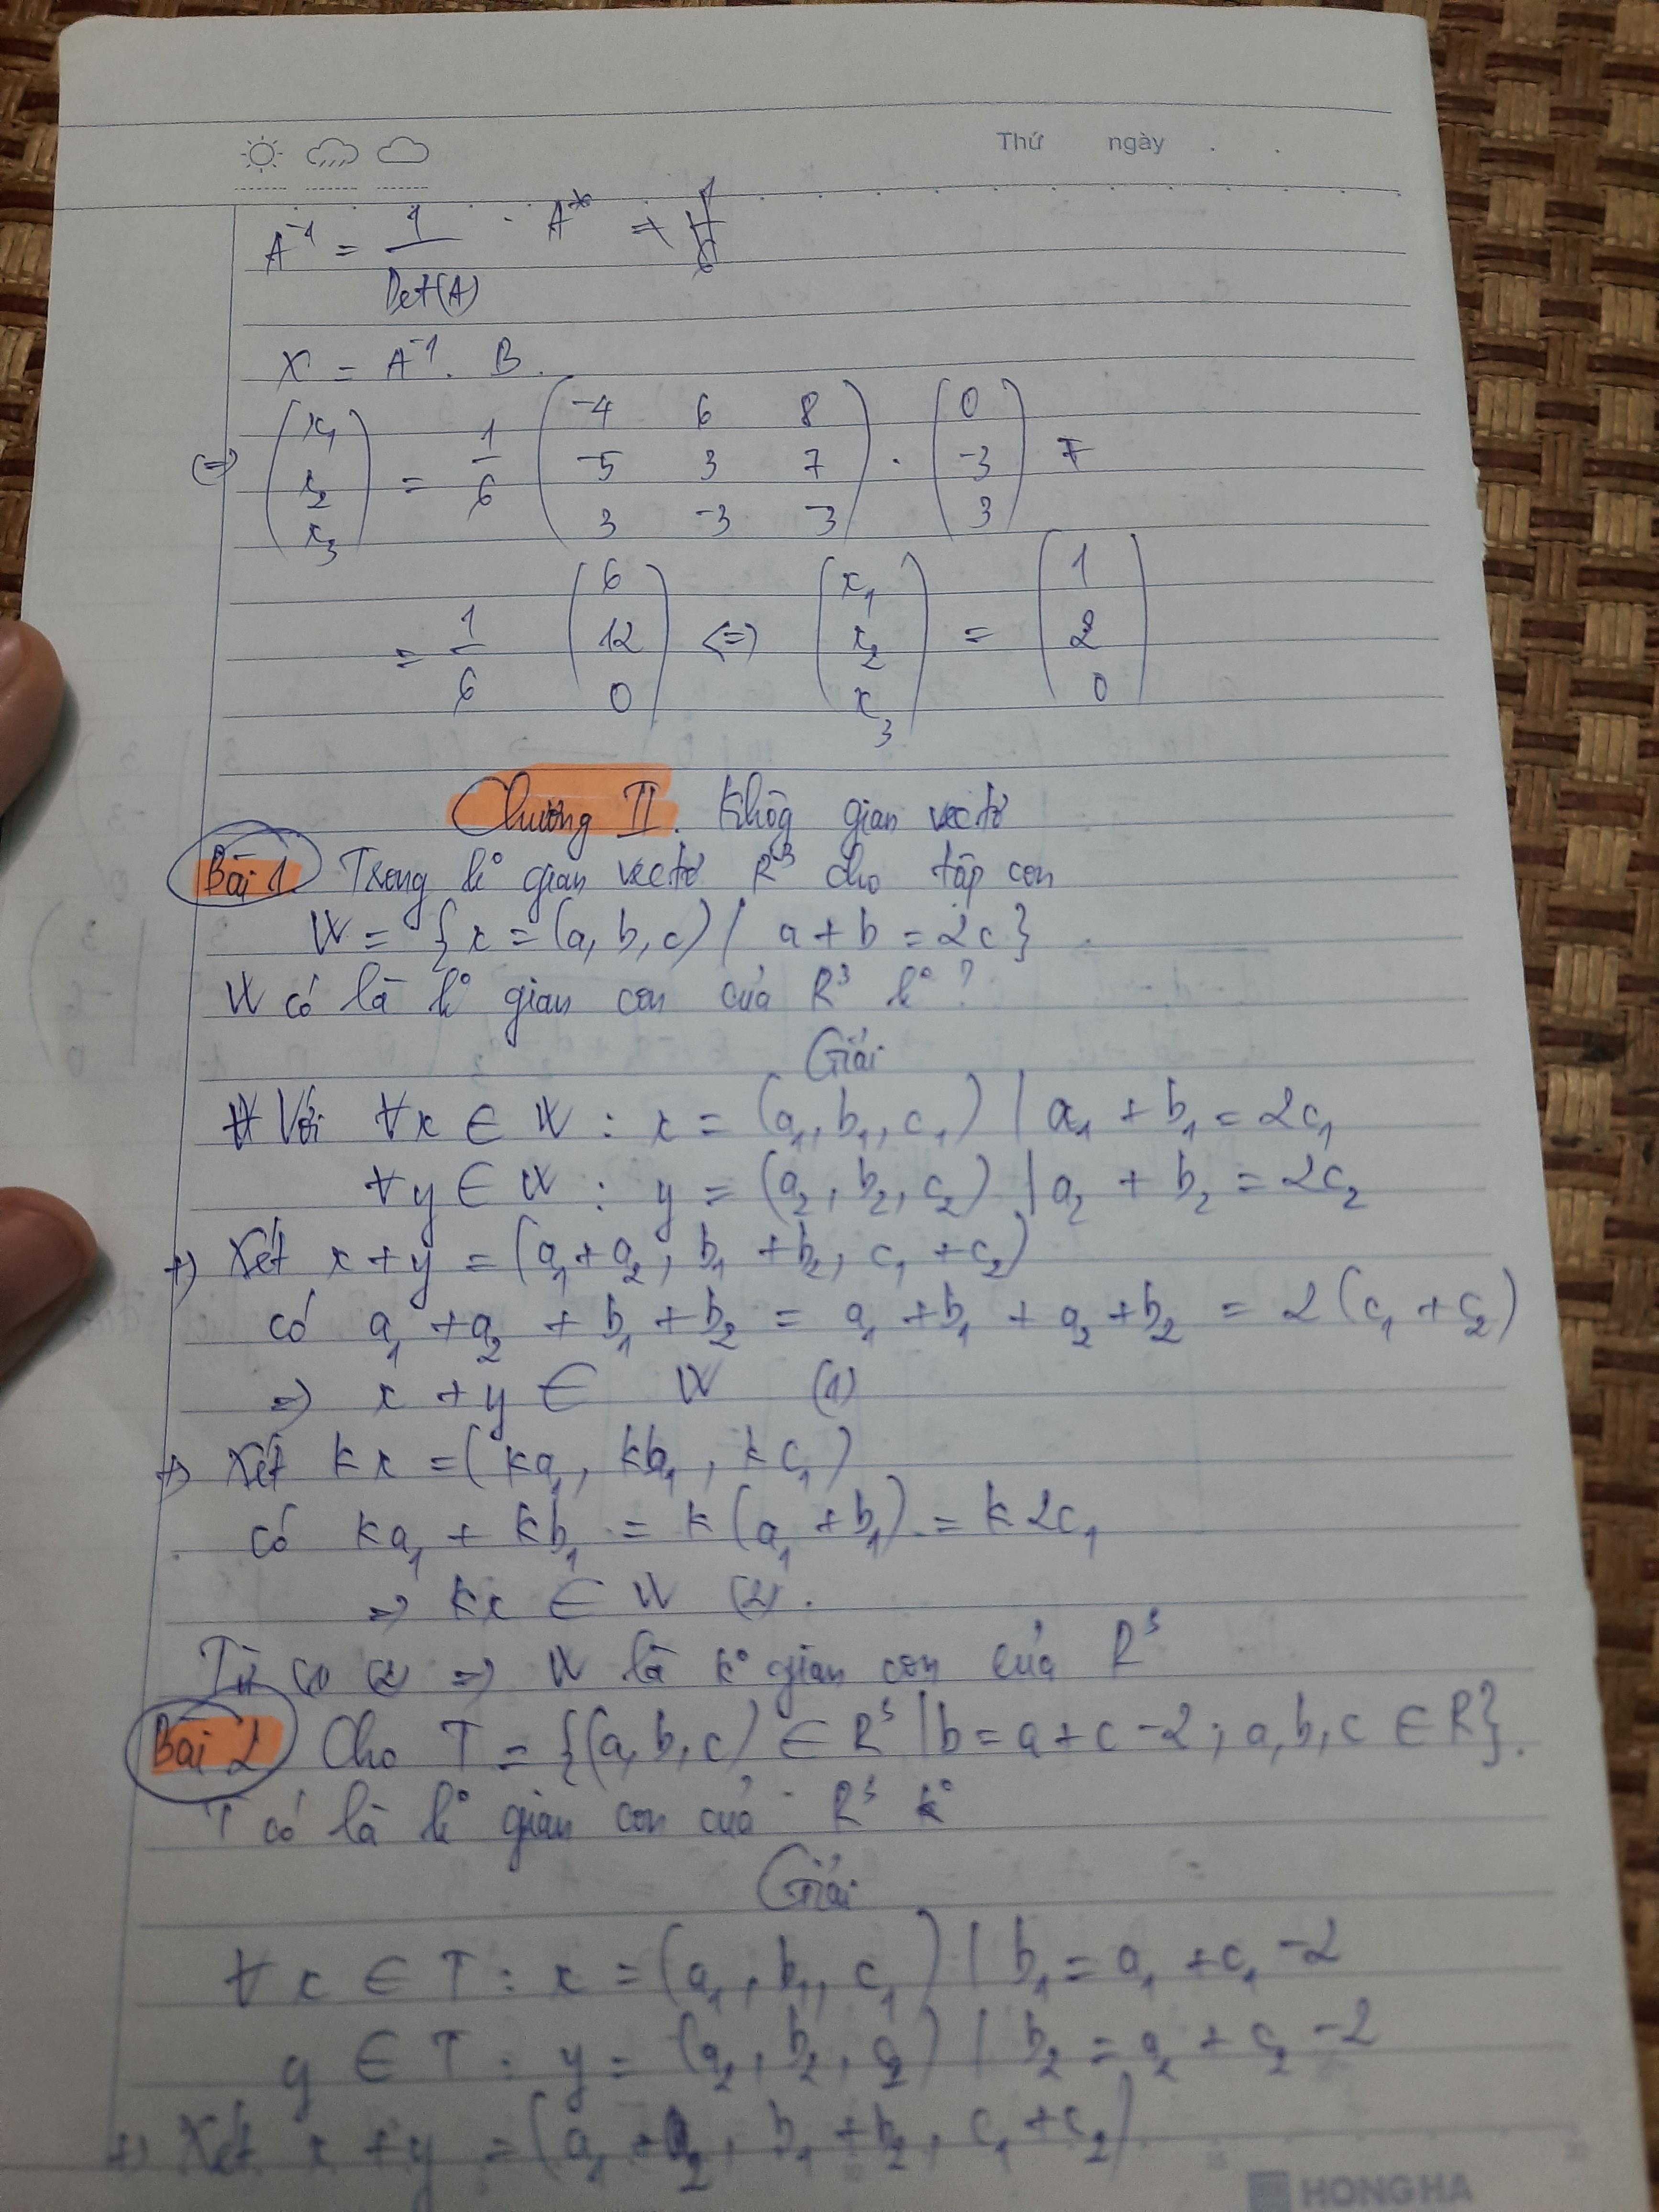 Thứ ngày . .
A⁻¹ = 1/Det(A) · A* =
X = A⁻¹. B.
(=) (x₁ x₂ x₃) = 1/6 (-4 6 8 / -5 3 7 / 3 -3 -3) . (0 -3 3)
= 1/6 (6 12 0) <=> (x₁ x₂ x₃) = (1 2 0)
Chương II. Khôg gian vectơ
Bài 1. Trong k° gian vectơ R³ cho tập con
W = {x = (a, b, c) / a + b = 2c}
W có là k° gian con của R³ k°?
Giải
Với ∀x ∈ W : x = (a₁, b₁, c₁) | a₁ + b₁ = 2c₁
∀y ∈ W : y = (a₂, b₂, c₂) | a₂ + b₂ = 2c₂
+) Xét x + y = (a₁ + a₂, b₁ + b₂, c₁ + c₂)
có a₁ + a₂ + b₁ + b₂ = a₁ + b₁ + a₂ + b₂ = 2(c₁ + c₂)
=> x + y ∈ W (1)
+) Xét kx = (ka₁, kb₁, kc₁)
có ka₁ + kb₁ = k(a₁ + b₁) = k2c₁
=> kx ∈ W (2).
Từ (1) (2) => W là k° gian con của R³
Bài 2 Cho T = {(a, b, c) ∈ R³ | b = a + c - 2 ; a, b, c ∈ R}.
T có là k° gian con của R³ k°
Giải
∀x ∈ T : x = (a₁, b₁, c₁) | b₁ = a₁ + c₁ - 2
y ∈ T : y = (a₂, b₂, c₂) | b₂ = a₂ + c₂ - 2
+) Xét x + y = (a₁ + a₂, b₁ + b₂, c₁ + c₂)
HONG HA